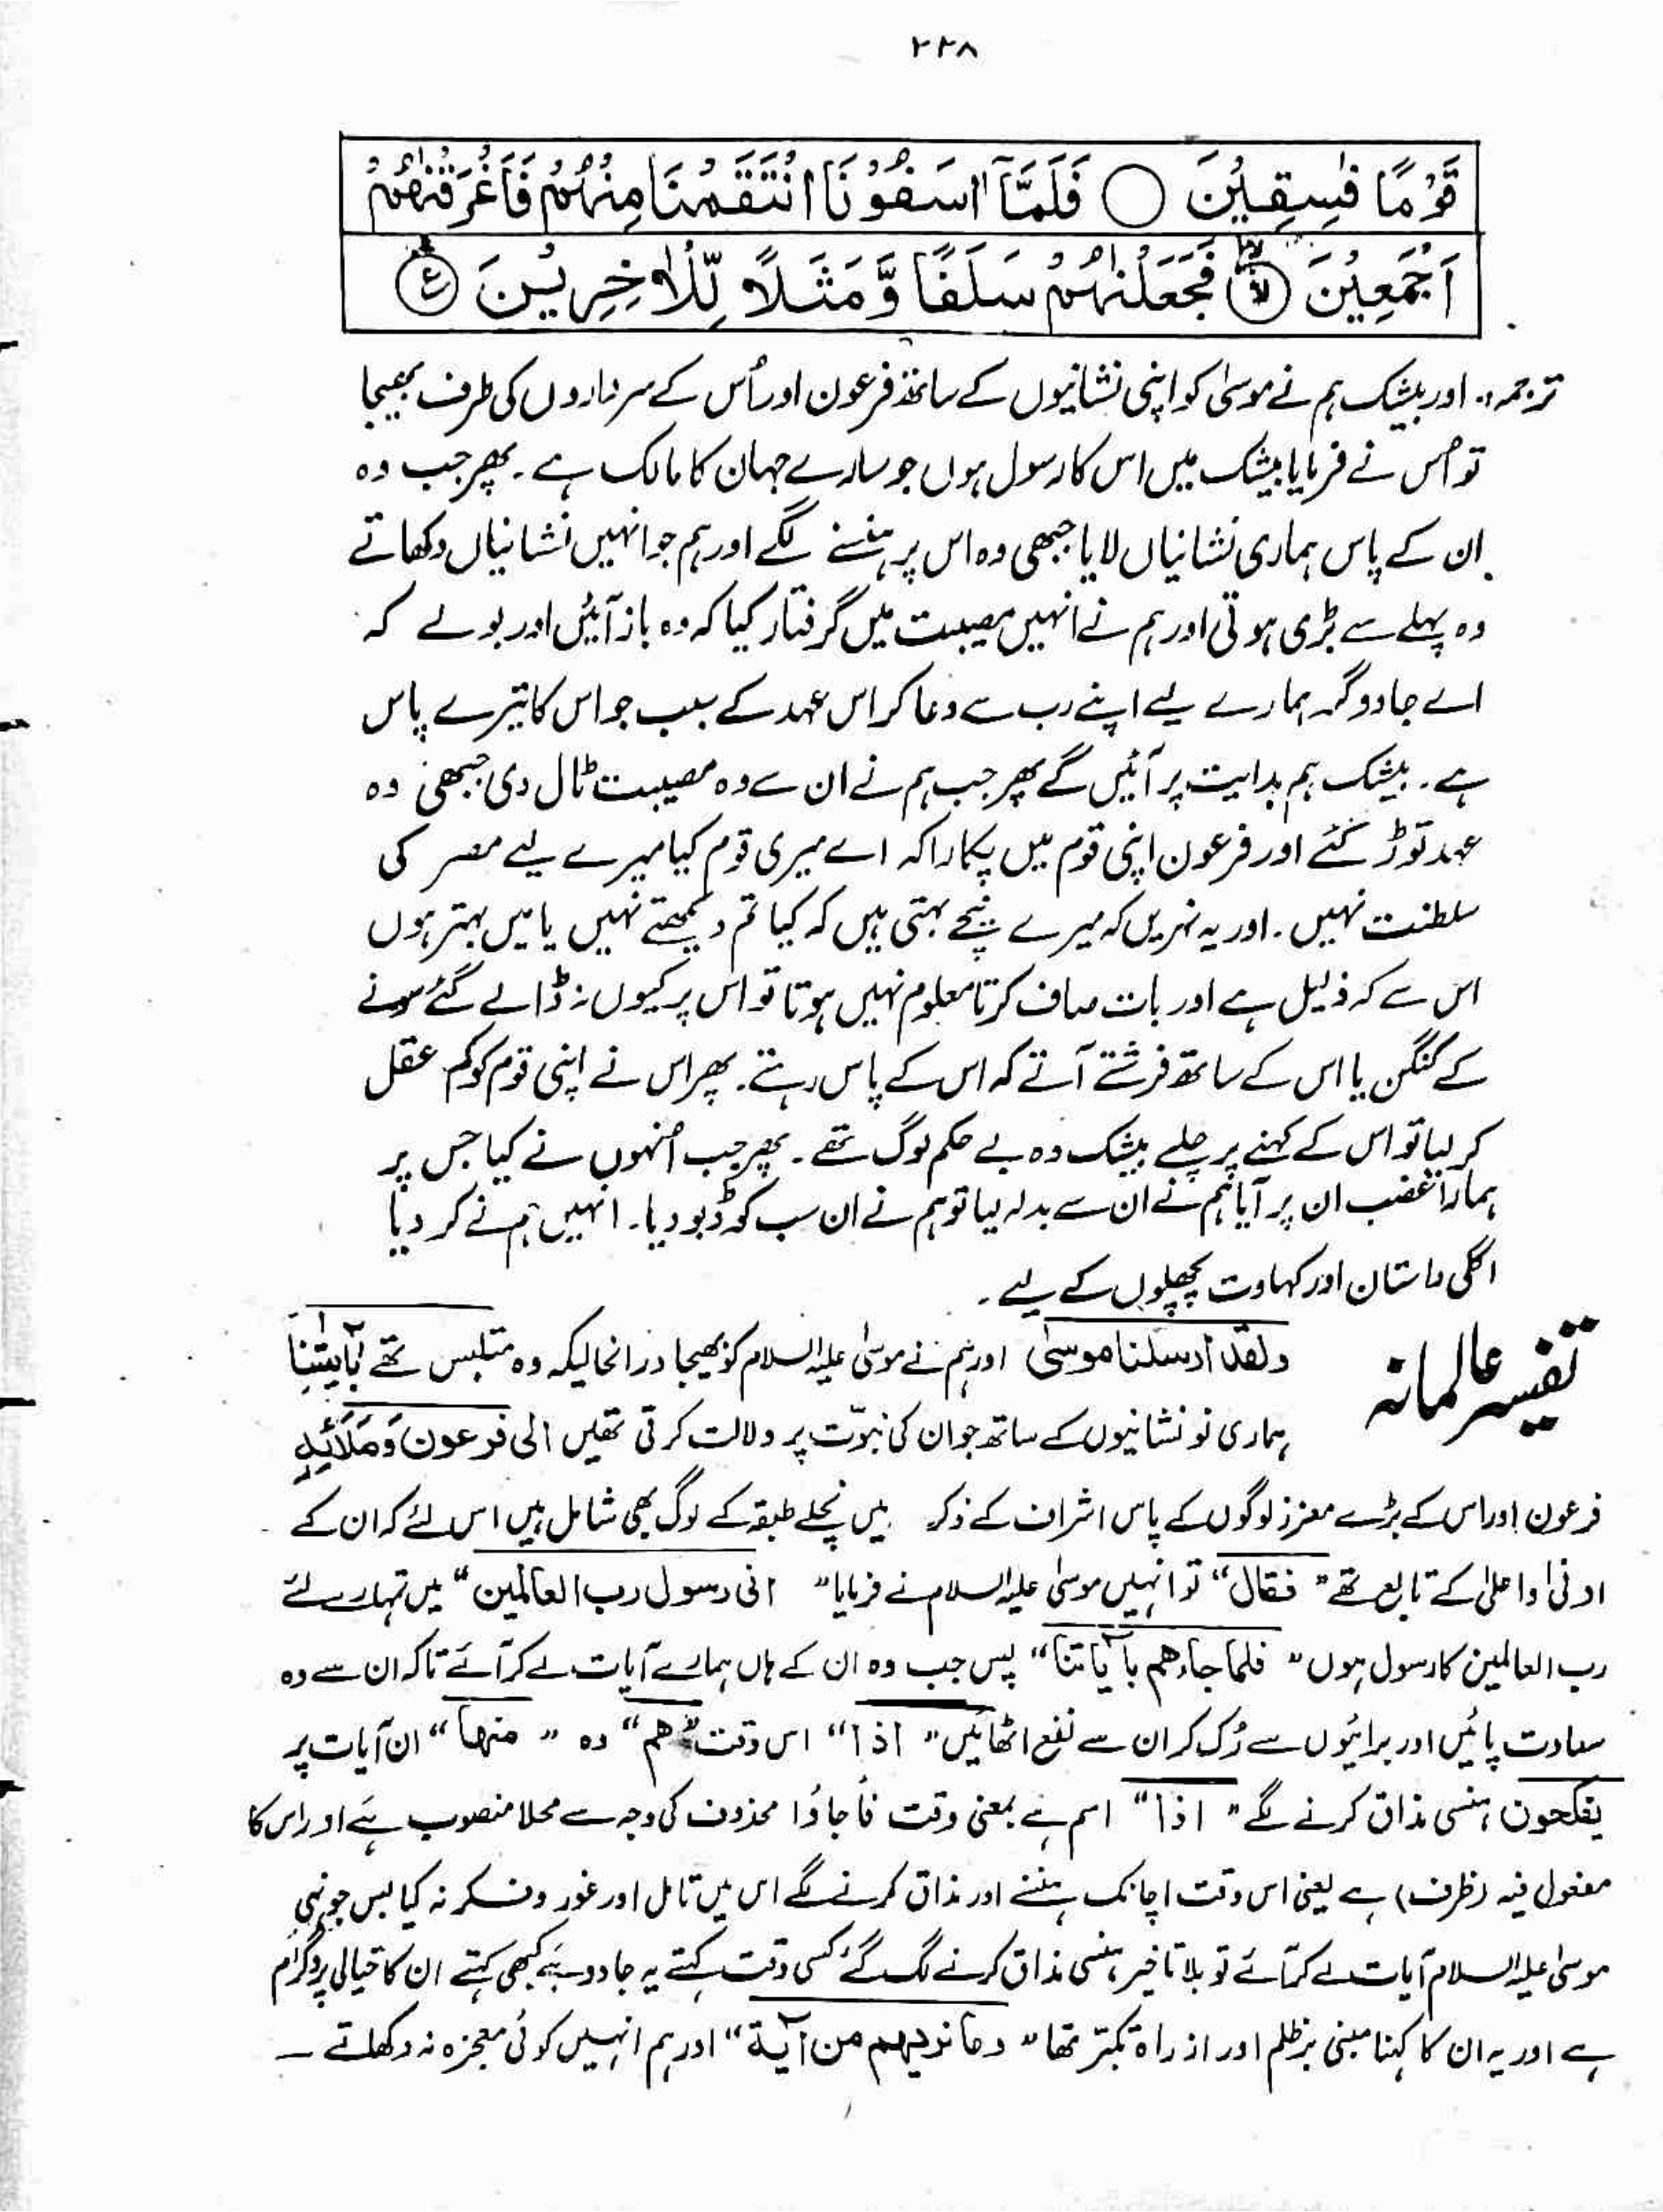 ۲۲۸
قَوْمًا فٰسِقِیْنَ ○ فَلَمَّاۤ اٰسَفُوْنَا انْتَقَمْنَا مِنْهُمْ فَاَغْرَقْنٰهُمْ
اَجْمَعِیْنَ ۙ فَجَعَلْنٰهُمْ سَلَفًا وَّ مَثَلًا لِّلْاٰخِرِیْنَ ع
ترجمہ:۔ اور بیشک ہم نے موسیٰ کو اپنی نشانیوں کے ساتھ فرعون اور اُس کے سرداروں کی طرف بھیجا
تو اُس نے فرمایا بیشک میں اس کا رسول ہوں جو سارے جہان کا مالک ہے۔ پھر جب وہ
ان کے پاس ہماری نشانیاں لایا جبھی وہ اس پر ہنسنے لگے اور ہم جو انہیں نشانیاں دکھاتے
وہ پہلے سے بڑی ہوتی اور ہم نے انہیں مصیبت میں گرفتار کیا کہ وہ باز آئیں اور بولے کہ
اے جادوگر ہمارے لیے اپنے رب سے دعا کر اس عہد کے سبب جو اس کا تیرے پاس
ہے۔ بیشک ہم ہدایت پر آئیں گے پھر جب ہم نے ان سے وہ مصیبت ٹال دی جبھی وہ
عہد توڑ گئے اور فرعون اپنی قوم میں پکارا کہ اے میری قوم کیا میرے لیے مصر کی
سلطنت نہیں۔ اور یہ نہریں کہ میرے نیچے بہتی ہیں کہ کیا تم دیکھتے نہیں یا میں بہتر ہوں
اس سے کہ ذلیل ہے اور بات صاف کرتا معلوم نہیں ہوتا تو اس پر کیوں نہ ڈالے گئے سونے
کے کنگن یا اس کے ساتھ فرشتے آتے کہ اس کے پاس رہتے۔ پھر اس نے اپنی قوم کو کم عقل
کر لیا تو اس کے کہنے پر چلے بیشک وہ بے حکم لوگ تھے۔ پھر جب اُنہوں نے کیا جس پر
ہمارا غضب ان پر آیا ہم نے ان سے بدلہ لیا تو ہم نے ان سب کو ڈبو دیا۔ انہیں ہم نے کر دیا
اگلی داستان اور کہاوت پچھلوں کے لیے۔
تفسیر عالمانہ ولقد ارسلنا موسیٰ اور ہم نے موسیٰ علیہ السلام کو بھیجا درانحالیکہ وہ متلبس تھے بآیٰتنا
ہماری نو نشانیوں کے ساتھ جو ان کی نبوّت پر دلالت کرتی تھیں الی فرعون وَمَلَائِهٖ
فرعون اور اس کے بڑے معزز لوگوں کے پاس اشراف کے ذکر میں نچلے طبقہ کے لوگ بھی شامل ہیں اس لئے کہ ان کے
ادنیٰ و اعلیٰ کے تابع تھے ”فقال“ تو انہیں موسیٰ علیہ السلام نے فرمایا ”انی رسول رب العالمین“ میں تمہارے لئے
رب العالمین کا رسول ہوں ”فلما جاءهم بآیاتنا“ پس جب وہ ان کے ہاں ہمارے آیات لے کر آئے تاکہ ان سے وہ
سعادت پائیں اور برائیوں سے رُک کر ان سے نفع اٹھائیں ”اذا“ اس وقت ”هم“ وہ ”منها“ ان آیات پر
یضحکون ہنسی مذاق کرنے لگے ”اذا“ اسم ہے بمعنی وقت فاجاؤا محذوف کی وجہ سے محلا منصوب ہے اور اس کا
مفعول فیہ (ظرف) ہے یعنی اس وقت اچانک ہنسنے اور مذاق کرنے لگے اس میں تامل اور غور و فکر نہ کیا بس جونہی
موسیٰ علیہ السلام آیات لے کر آئے تو بلا تاخیر ہنسی مذاق کرنے لگ گئے کسی وقت کہتے یہ جادو ہے کبھی کہتے ان کا خیالی پروگرام
ہے اور یہ ان کا کہنا مبنی بر ظلم اور از راہ تکبّر تھا ”وما نریهم من آیة“ اور ہم انہیں کوئی معجزہ نہ دکھلاتے –